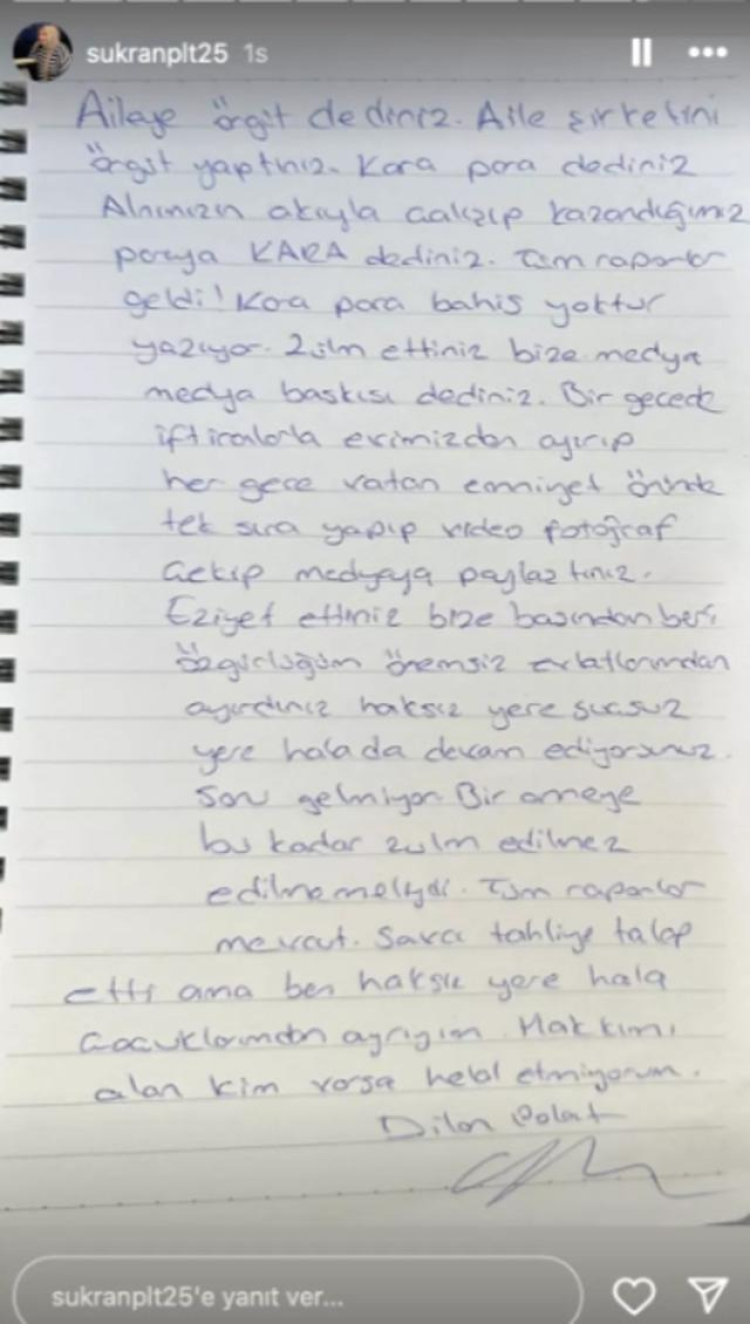 sukranplt25 1s
Aileye örgüt dediniz. Aile şirketini
örgüt yaptınız. Kara para dediniz
Alnımızın akıyla çalışıp kazandığımız
paraya KARA dediniz. Tüm raporlar
geldi! Kara para bahis yoktur
yazıyor. Zulm ettiniz bize medya
medya baskısı dediniz. Bir gecede
iftiralarla evimizden ayırıp
her gece vatan emniyet önünde
tek sıra yapıp video fotoğraf
Çekip medyaya paylaştınız.
Eziyet ettiniz bize başından beri
özgürlüğüm önemsiz evlatlarımdan
ayırdınız haksız yere suçsuz
yere hala da devam ediyorsunuz.
Sonu gelmiyor. Bir anneye
bu kadar zulm edilmez
edilmemeliydi. Tüm raporlar
mevcut. Savcı tahliye talep
etti ama ben haksız yere hala
Çocuklarımdan ayrıyım. Hakkımı
alan kim varsa helal etmiyorum.
Dilan Polat
sukranplt25'e yanıt ver...